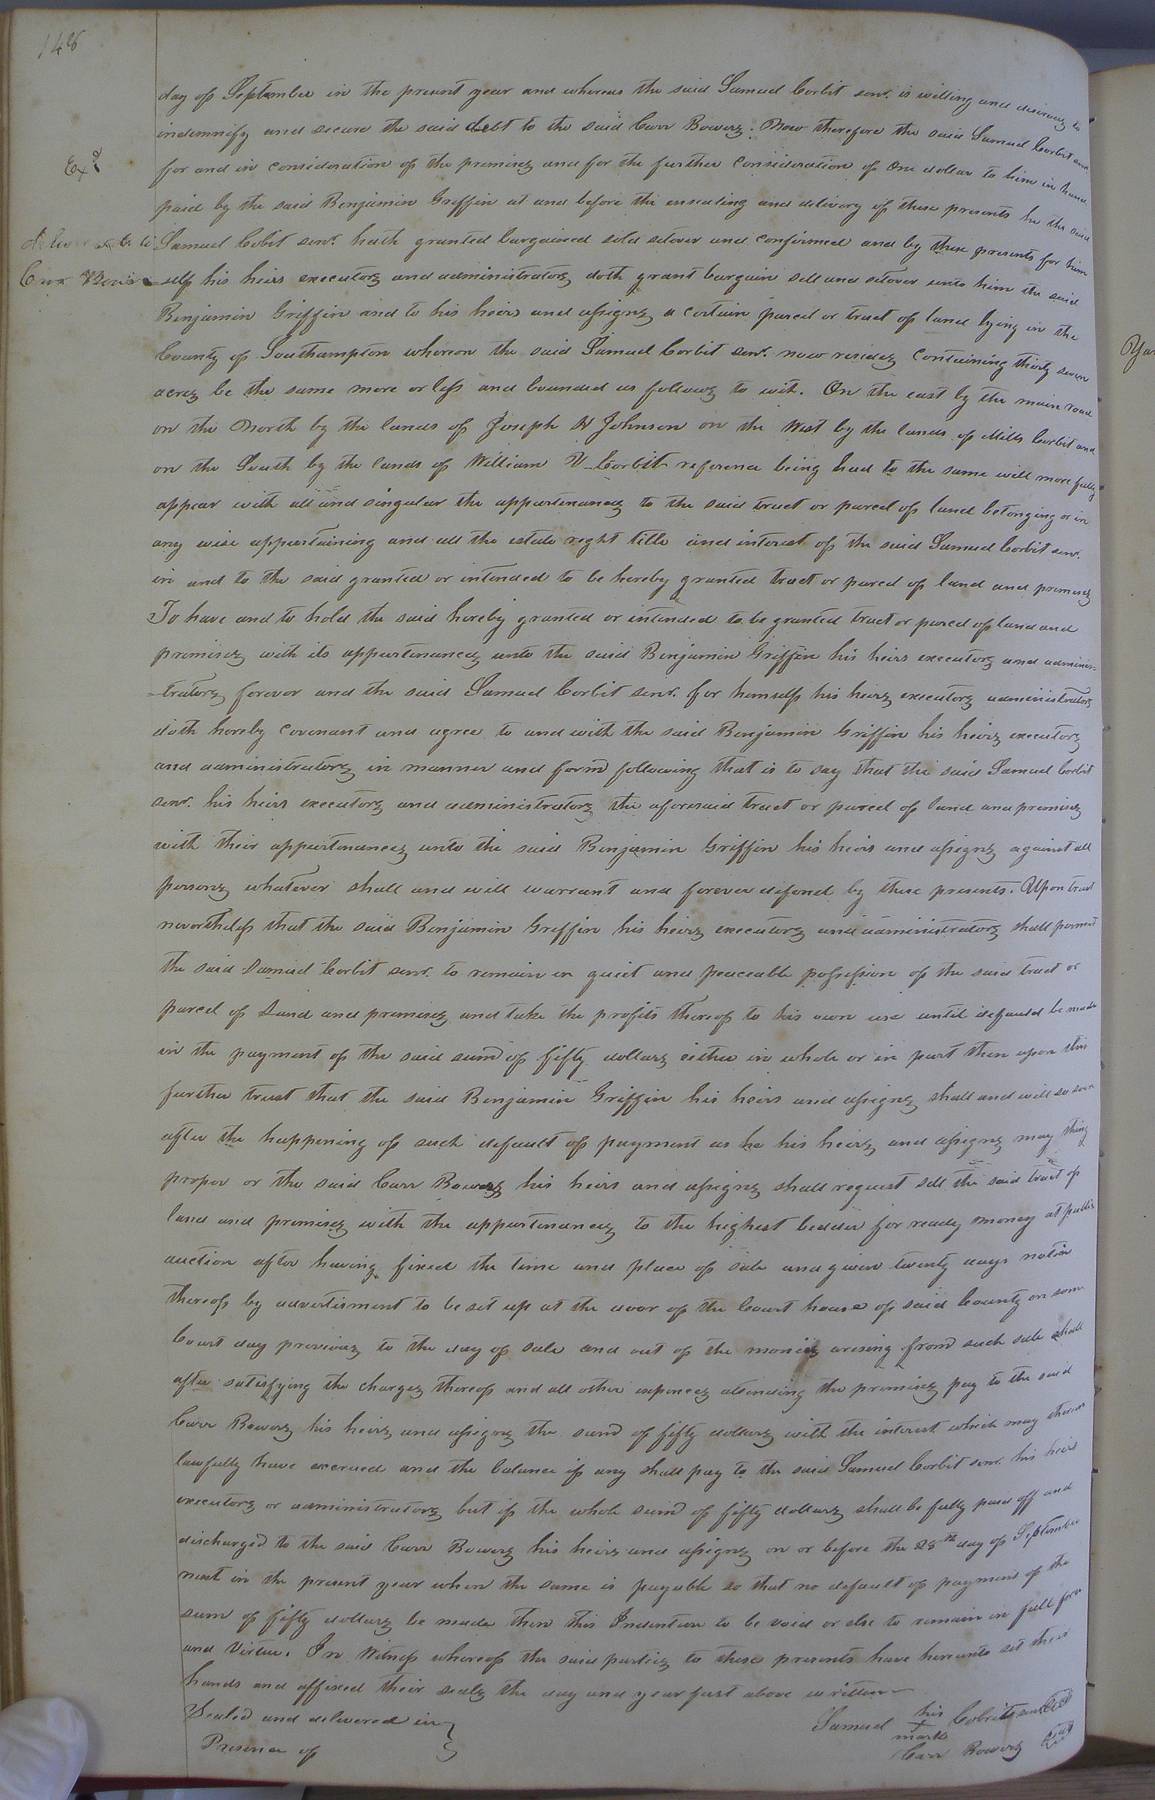 148
day of September in the present year and whereas the said Samuel Corbit senr. is willing and desirous to
indemnify and secure the said debt to the said Carr Bowers. Now therefore the said Samuel Corbit senr
for and in consideration of the premises and for the further consideration of one dollar to him in hand
Exd
paid by the said Benjamin Griffin at and before the ensealing and delivery of these presents he the said
Samuel Cobit senr. hath granted bargained sold setover and confirmed and by these presents for him
Carr
self his heirs executors and administrators doth grant bargain sell and setover unto him the said
Benjamin Griffin and to his heirs and assigns a certain parcel or tract of land lying in the
County of Southampton whereon the said Samuel Corbit senr. now resides Containing thirty seven
acres be the same more or less and bounded as follows to wit. On the east by the main road
on the North by the lands of Joseph Johnson on the West by the lands of Mills Corbit and
on the South by the lands of William Corbit reference being had to the same will more fully
appear with all and singular the appurtenances to the said tract or parcel of land belonging or in
any wise appertaining and all the estate right title and interest of the said Samuel Corbit senr.
in and to the said granted or intended to be hereby granted tract or parcel of land and premises
To have and to hold the said hereby granted or intended to be granted tract or parcel of land and
premises with its appurtenances unto the said Benjamin Griffin his heirs executors and adminis-
-trators forever and the said Samuel Corbit senr. for himself his heirs executors administrators
doth hereby covenant and agree to and with the said Benjamin Griffin his heirs executors
and administrators in manner and form following that is to say that the said Samuel Corbit
senr. his heirs executors and administrators the aforesaid tract or parcel of land and premises
with their appurtenances unto the said Benjamin Griffin his heirs and assigns against all
persons whatever shall and will warrant and forever defend by these presents. Upon trust
nevertheless that the said Benjamin Griffin his heirs executors and administrators shall permit
the said Samuel Corbit senr. to remain in quiet and peaceable possession of the said tract or
parcel of Land and premises and take the profits thereof to his own use until default be made
in the payment of the said sum of fifty dollars either in whole or in part then upon this
further trust that the said Benjamin Griffin his heirs and assigns shall and will so soon
after the happening of such default of payment as he his heirs and assigns may thing
proper or the said Carr Bowers his heirs and assigns shall request sell the said tract of
land and premises with the appurtenances to the highest bedder for ready money at public
auction after having fixed the time and place of sale and given twenty days notice
thereof by advertisment to be set up at the door of the Court house of said County on some
Court day previous to the day of sale and out of the monies arising from such sale shall
after satisfying the charges thereof and all other expences attending the premises pay to the said
Carr Bowers his heirs and assigns the sum of fifty dollars with the interest which may thereon
lawfully have accrued and the balance if any shall pay to the said Samuel Corbit senr. his heirs
executors or administrators but if the whole sum of fifty dollars shall be fully paid off and
discharged to the said Carr Bowers his heirs and assigns on or before the 28th day of September
next in the present year when the same is payable so that no default of payment of the
sum of fifty dollars be made then this Indenture to be void or else to remain in full force
and Virtue. In Witness whereof the said parties to these presents have hereunto set their
hands and affixed their seals the day and year first above written
Sealed and delivered in }
Presence of
Samuel his + mark Cobrit senr seal
Carr Bowers seal